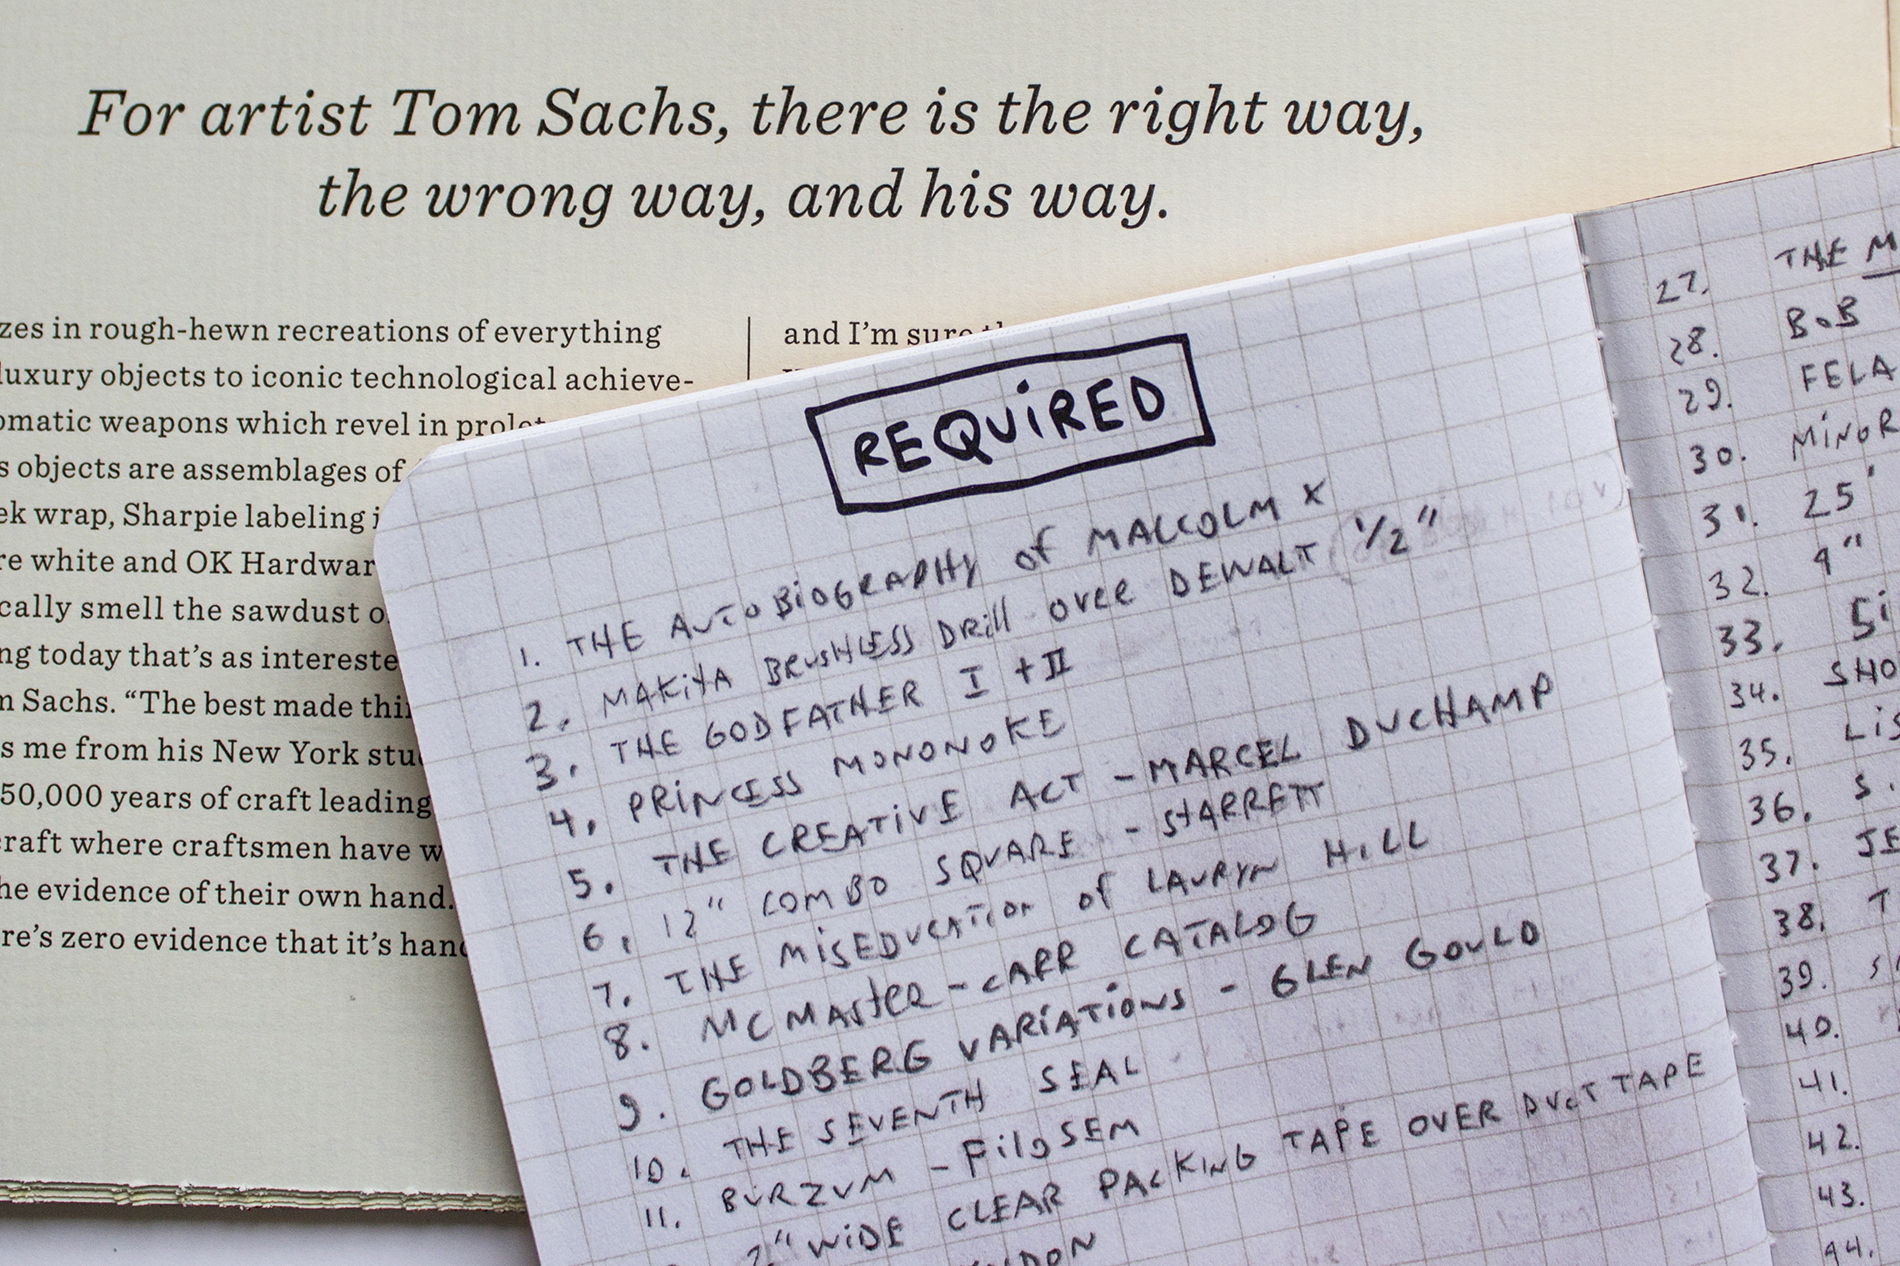 For artist Tom Sachs, there is the right way,
the wrong way, and his way.
zes in rough-hewn recreations of everything
luxury objects to iconic technological achieve-
omatic weapons which revel in prolet
s objects are assemblages of
ek wrap, Sharpie labeling i
re white and OK Hardwar
cally smell the sawdust o
ng today that's as intereste
m Sachs. “The best made thi
s me from his New York stu
50,000 years of craft leading
craft where craftsmen have w
he evidence of their own hand.
re's zero evidence that it's hand
and I'm sure
REQUiRED
1. THE AUTOBiOGRAPHY of MALCOLM X
2. MAKiTA BRUSHLESS DRill OVER DEWALT 1/2"
3. THE GODFATHER I + II
4. PRiNCESS MONONOKE
5. THE CREATiVE ACT - MARCEL DUCHAMP
6. 12" COMBO SQUARE - STARRETT
7. THE MiSEDUCATION of LAURYN HiLL
8. MCMASTER-CARR CATALOG
9. GOLDBERG VARiATiONS - GLEN GOULD
10. THE SEVENTH SEAL
11. BURZUM - FilOSEM
2" WiDE CLEAR PACKING TAPE OVER DUCT TAPE
27. THE M
28. BOB
29. FELA
30. MiNOR
31. 25'
32. 9"
33. Si
34. SHO
35. LiS
36. S.
37. JE
38. T
39. S
40.
41.
42.
43.
44.